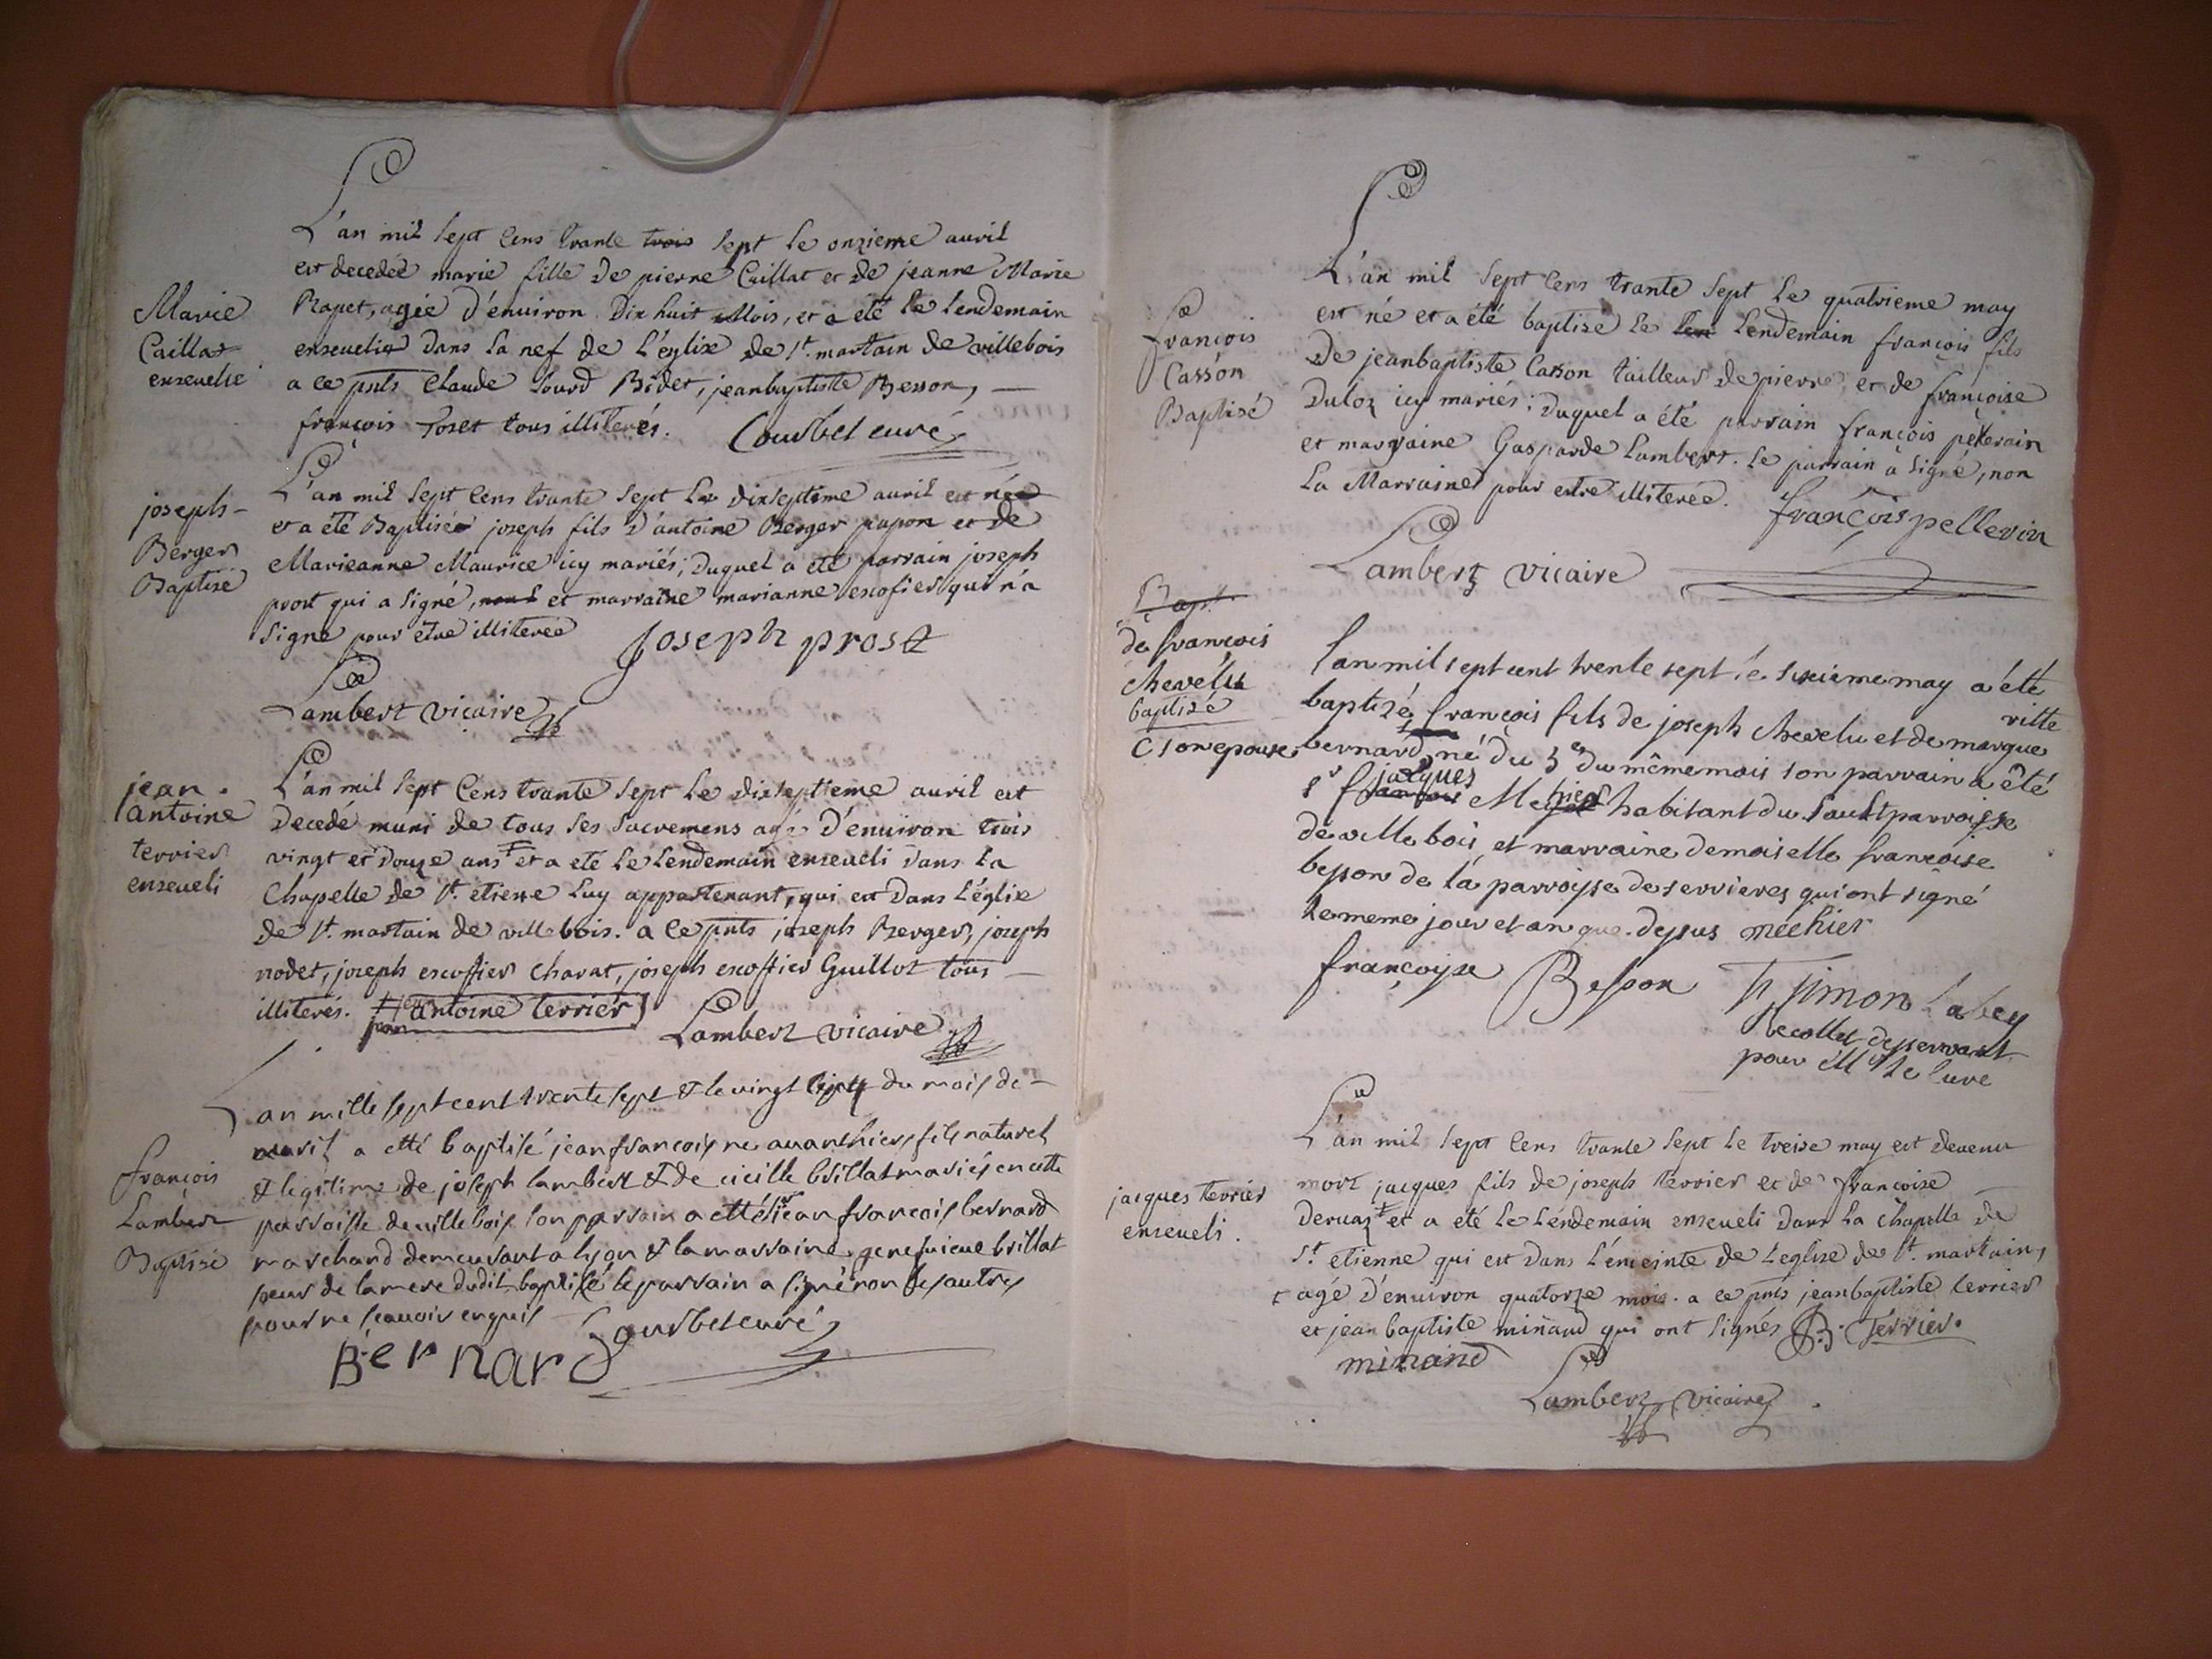 L'an mil sept cens trante trois sept le onzieme auril
est decedée marie fille de pierre Caillat et de jeanne Marie
Rapet, agée d'enuiron Dix huit Mois, et a été le lendemain
enseuelie Dans la nef de L'eglise de St. martain de villebois
a ce pnts Claude Lourd Bidet, jeanbaptiste Besson,
françois Poset tous illiterés. Courbet curé
Marie
Caillat
enseuelie
L'an mil sept Cens trante sept Le dixseptieme auril est né
et a été Baptisé joseph fils D'antoine Berger papon et de
Marieanne Maurice icy mariés; Duquel a eté parrain joseph
prost qui a signé, non et marraine marianne escofier qui n'a
signé pour être illiterée Joseph prost
Lambert vicaire
joseph
Berger
Baptisé
L'an mil sept Cens trante sept Le dixseptieme auril est
Decedé muni de tous ses sacremens agé D'enuiron trois
vingt et Douze ans et a eté Le Lendemain enseueli Dans La
Chapelle de St. etiene Luy appartenant, qui est Dans L'église
de St. martain de villebois. a ce pnts joseph Berger, joseph
nodet, joseph escoffier charat, joseph escoffier Guillot tous
illiterés. antoine terrier
Lambert vicaire
jean
antoine
terrier
enseueli
Lan mille sept cent trente sept & le vingt sept du mois de
auril a etté baptisé jean francois ne auant hier fils naturel
& legitime de joseph lambert & de cicille brillat mariés en cette
parroisse de uillebois son parrain a etté sr jean francois bernard
marchand demeurant a lyon & la marraine geneuieue brillat
soeur de la mere dudit baptisé le parrain a signé non les autres
pour ne scauoir enquis Courbet curé
Bernard
françois
Lambert
Baptisé
L'an mil sept cens trante sept Le quatrieme may
est né et a été baptisé le Len Lendemain françois fils
De jeanbaptiste Casson tailleur de pierre, et de françoise
Duloz icy mariés; Duquel a été parrain françois pelerain
et marraine Gasparde Lambert. Le parrain a signé, non
La Marraine pour estre illiterée. françois pellerin
Lambert vicaire
françois
Casson
Baptisé
Bapt.
de françois
chevelu
baptisé
lan mil sept cent trente sept le sixieme may a été
baptizé françois fils de joseph chevelu et de margue
ritte
C son epouse bernard, né du 5e du même mois son parrain a été
sr françois jacques Meghier habitant du Sault parroisse
de villebois et marraine demoiselle françoise
besson de la parroisse de serrieres qui ont signé
le meme jour et an que dessus mechier
françoise Besson fr Simon Labey
recollet desservant
pour Mr le curé
L'an mil sept Cens trante sept Le treise may est devenu
mort jacques fils de joseph terrier et de françoise
Deruaz et a eté Le Lendemain enseueli dans La chapelle de
St etienne qui est dans L'enceinte de L'eglise de St. martain,
agé D'enuiron quatorze mois. a ce pnts jeanbaptiste terrier
et jean baptiste minand qui ont signés JB. Terrier.
minand
Lambert vicaire
jacques terrier
enseueli.